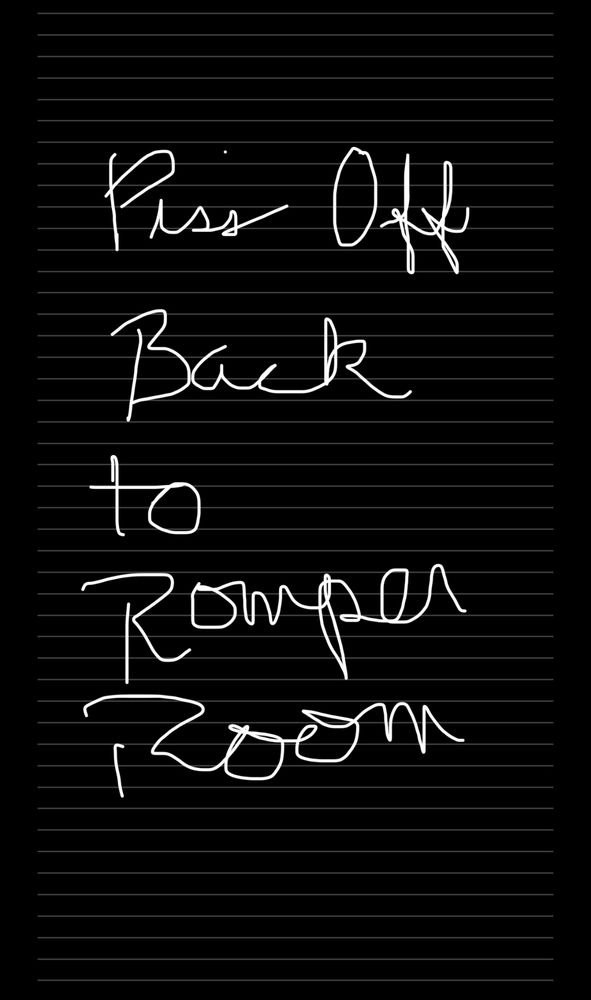 Piss Off
Back
to
Romper
Room